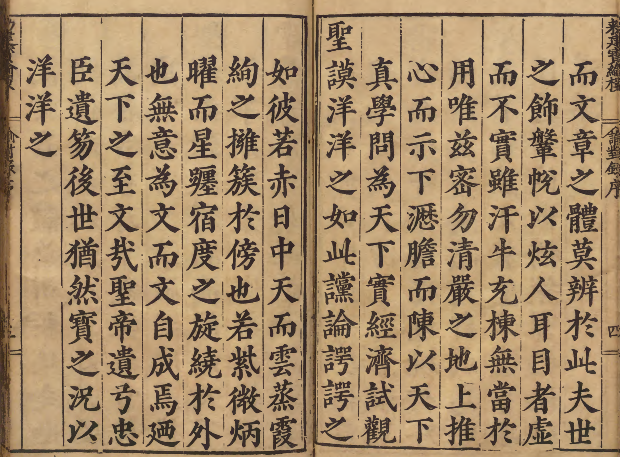 寶綸樓
諭對錄序
四
而文章之體莫辨於此夫世
之飾鞶帨以炫人耳目者虛
而不實雖汗牛充棟無當於
用唯茲密勿清嚴之地上推
心而示下瀝膽而陳以天下
真學問為天下實經濟試觀
聖謨洋洋之如此讜論諤諤之
如彼若赤日中天而雲蒸霞
絢之擁簇於傍也若紫微炳
曜而星躔宿度之旋繞於外
也無意為文而文自成焉廼
天下之至文哉聖帝遺弓忠
臣遺笏後世猶然寶之況以
洋洋之